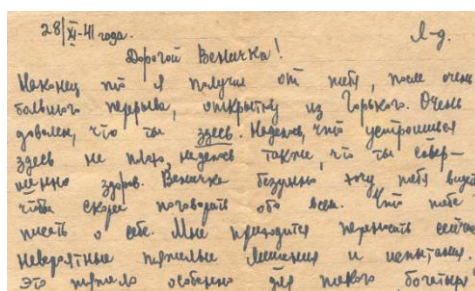 28/XI-41 года. Л-д.
Дорогой Веничка!
Наконец то я получил от тебя, после очень
большого перерыва, открытку из Горького. Очень
доволен, что ты здесь. Надеюсь, что устроишься
здесь не плохо, надеюсь также, что ты совер-
шенно здоров. Веничка безумно хочу тебя видеть
чтобы скорее поговорить обо всем. Что тебе
писать о себе. Мне приходится переносить сейчас
невероятные тяжелые лишения и испытания.
Это тяжело особенно для такого богатыря